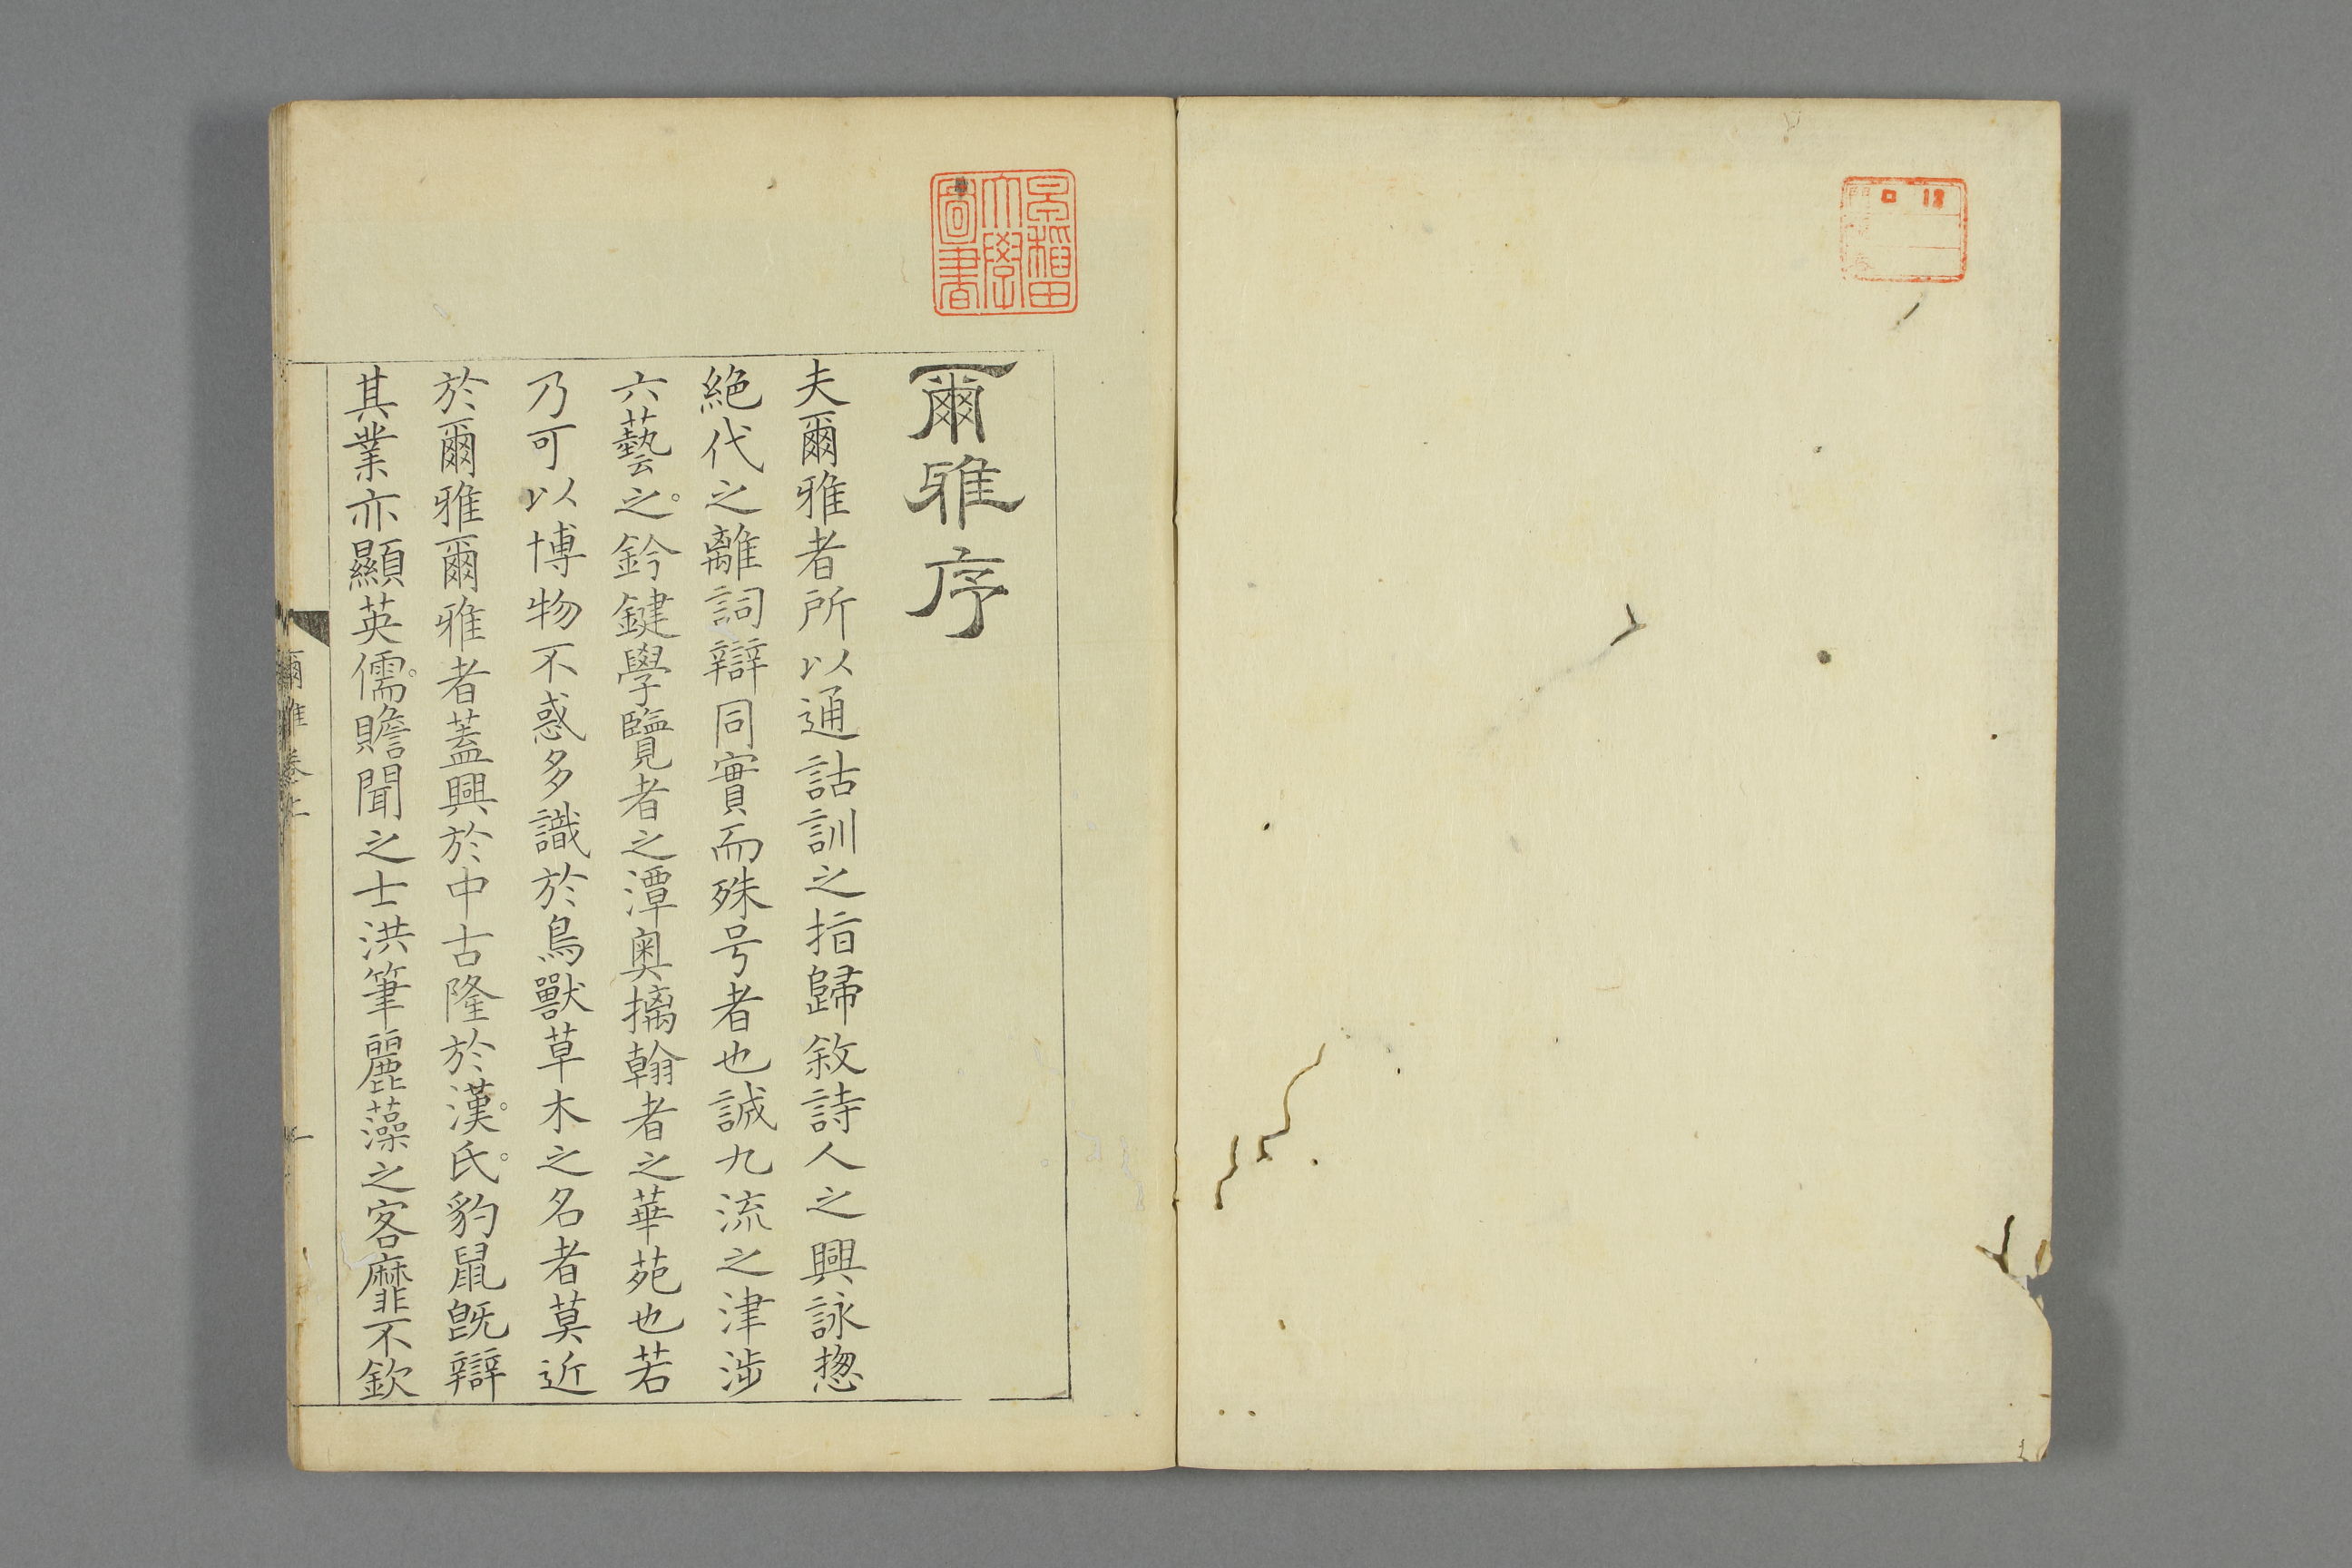 爾雅序
夫爾雅者所以通詁訓之指歸敘詩人之興詠揔
絶代之離詞辯同實而殊号者也誠九流之津涉
六藝之鈐鍵學覽者之潭奧摛翰者之華苑也若
乃可以博物不惑多識於鳥獸草木之名者莫近
於爾雅爾雅者蓋興於中古隆於漢氏豹鼠旣辯
其業亦顯英儒贍聞之士洪筆麗藻之客靡不欽
爾雅卷上
一
早稲田
大學
圖書